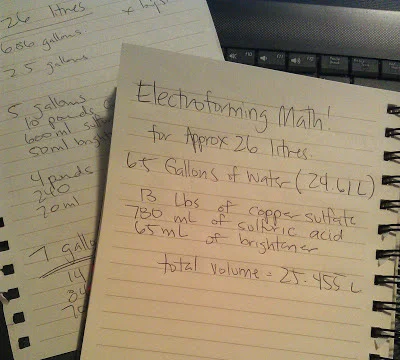 26 litres
6.86 gallons
2.5 gallons
5 gallons
10 pounds
600ml
50ml
4 punds
240
20ml
7
14
Electroforming Math!
for Approx 26 litres.
6.5 Gallons of Water (24.61 L)
13 Lbs of copper sulfate
780 mL of sulfuric acid
65mL of brightener
total volume = 25.455 L